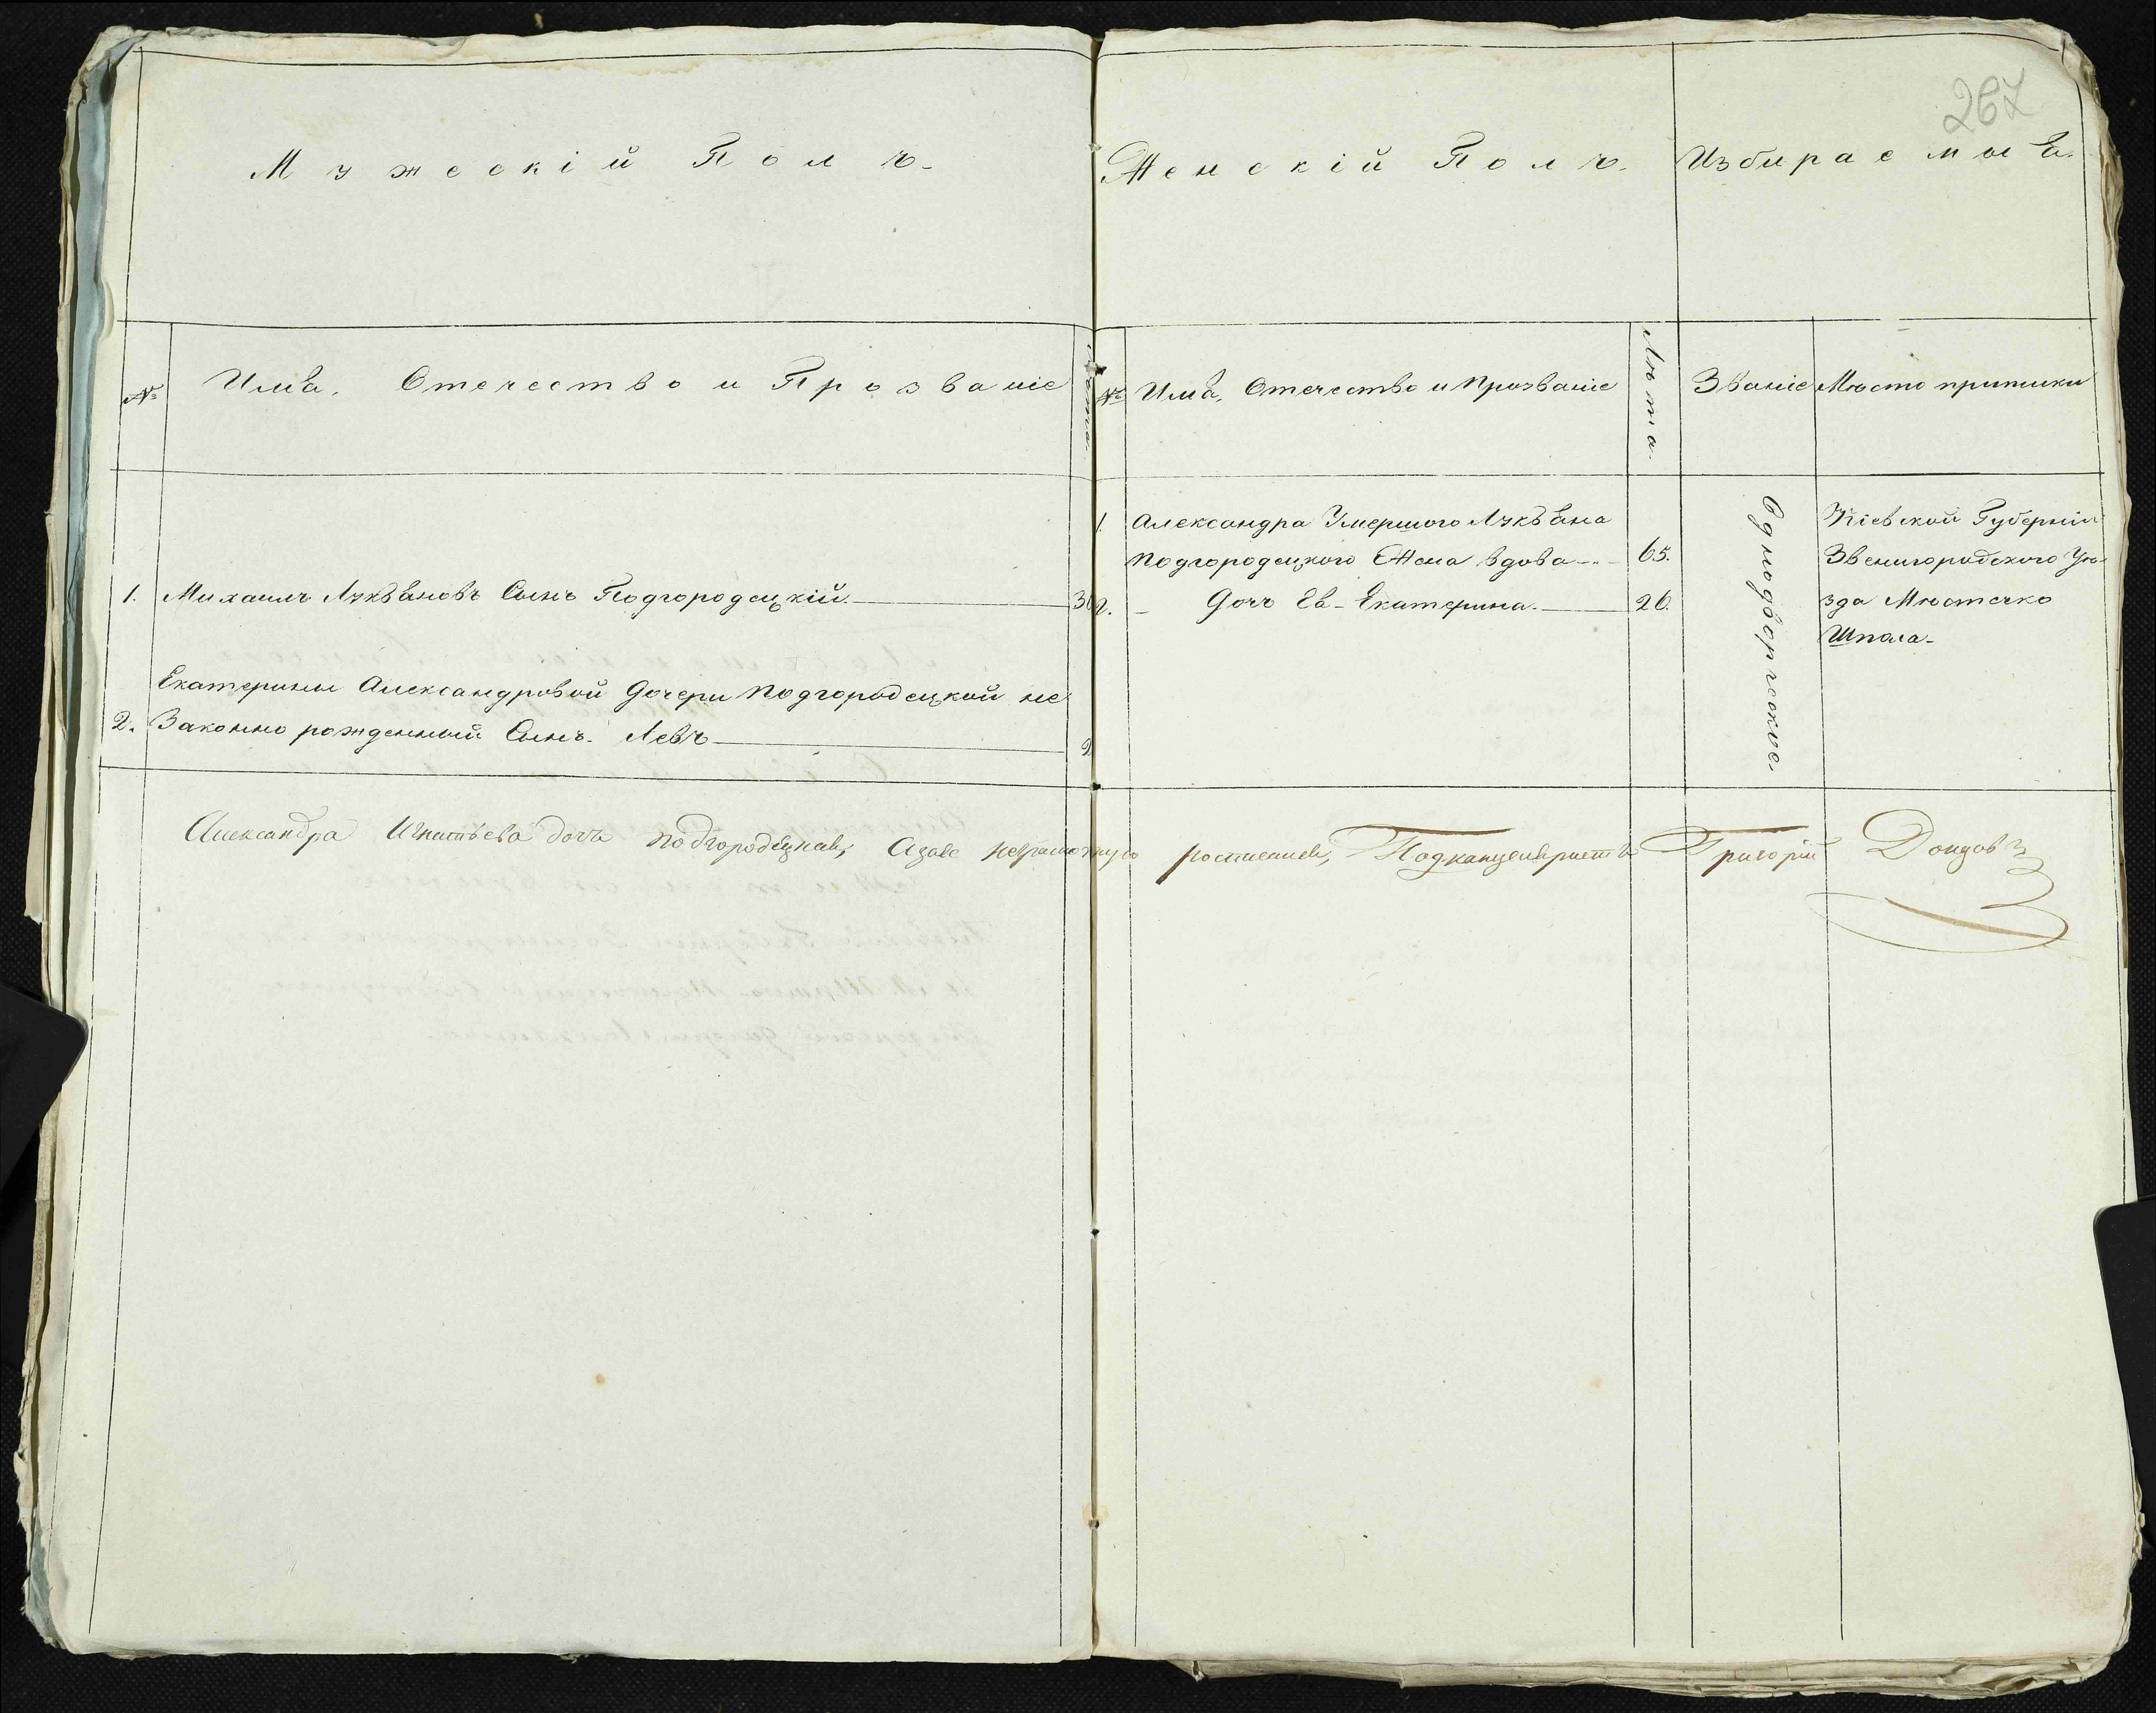 267
Мужескій Полъ.
Женскій Полъ.
Избираемыя.
№
Имя, Отечество и Прозваніе
Лѣта.
№
Имя, Отечество и Прозваніе
Лѣта.
Званіе
Мѣсто приписки
1. Михаилъ Лукьяновъ Сынъ Подгородецкій.
Екатерины Александровой Дочери Подгородецкой не
2. Законно рожденный Сынъ Левъ 2
1. Александра Умершого Лукьяна
Подгородецкого Жена вдова 65.
2. Дочь Ея Екатерина. 26.
Однодворческое
Кіевской Губерніи
Звенигородского Уѣ-
зда Мѣстечко
Шпола.
Александра Игнатьева дочь Подгородецкая, Азаее неграмотную росписался, Подканцеляристъ Григорій